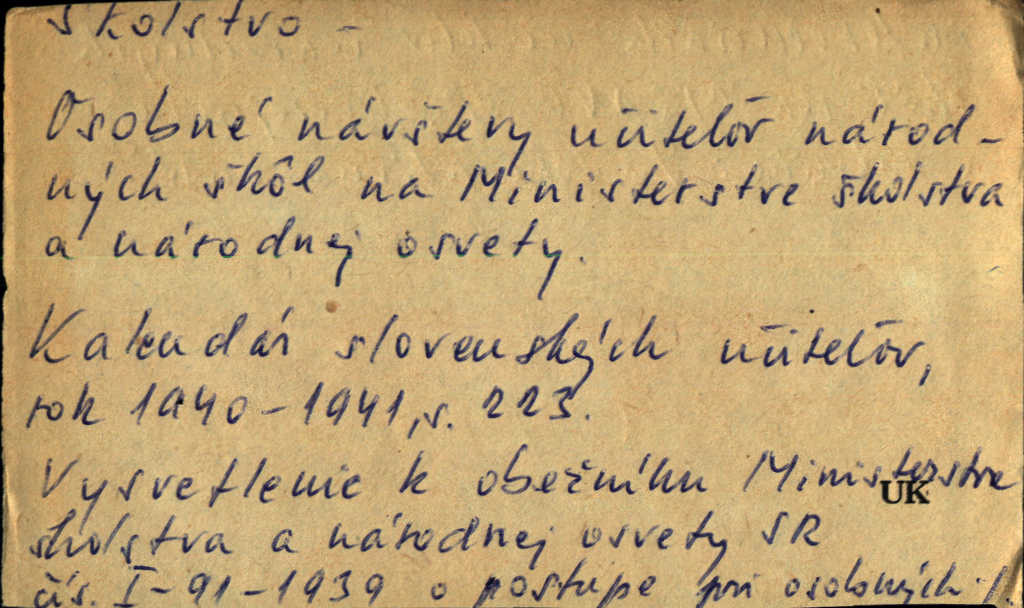 školstvo -
Osobné návštevy učiteľov národ-
ných škôl na Ministerstve školstva
a národnej osvety.
Kalendár slovenských učiteľov,
rok 1940-1941, s. 223.
Vysvetlenie k obežníku Ministerstva
UK
školstva a národnej osvety SR
čís. I-91-1939 o postupe pri osobných /.